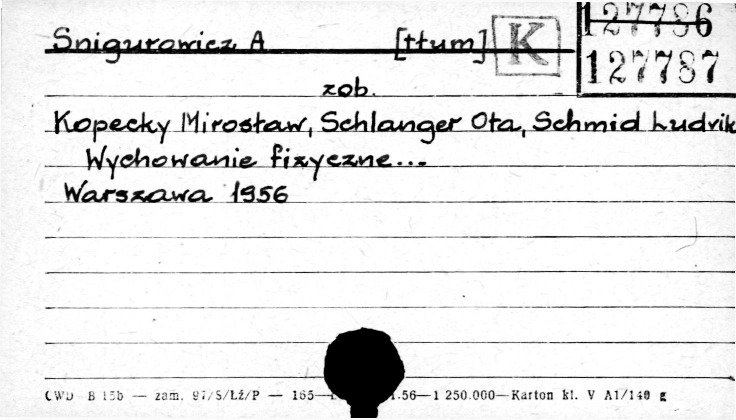 127786
Snigurowicz A [tłum] K
127787
zob.
Kopecky Mirosław, Schlanger Ota, Schmid Ludvik
Wychowanie fizyczne...
Warszawa 1956
CWD B 15b — zam. 97/S/Łź/P — 165 1.56—1 250.000—Karton kl. V A1/140 g